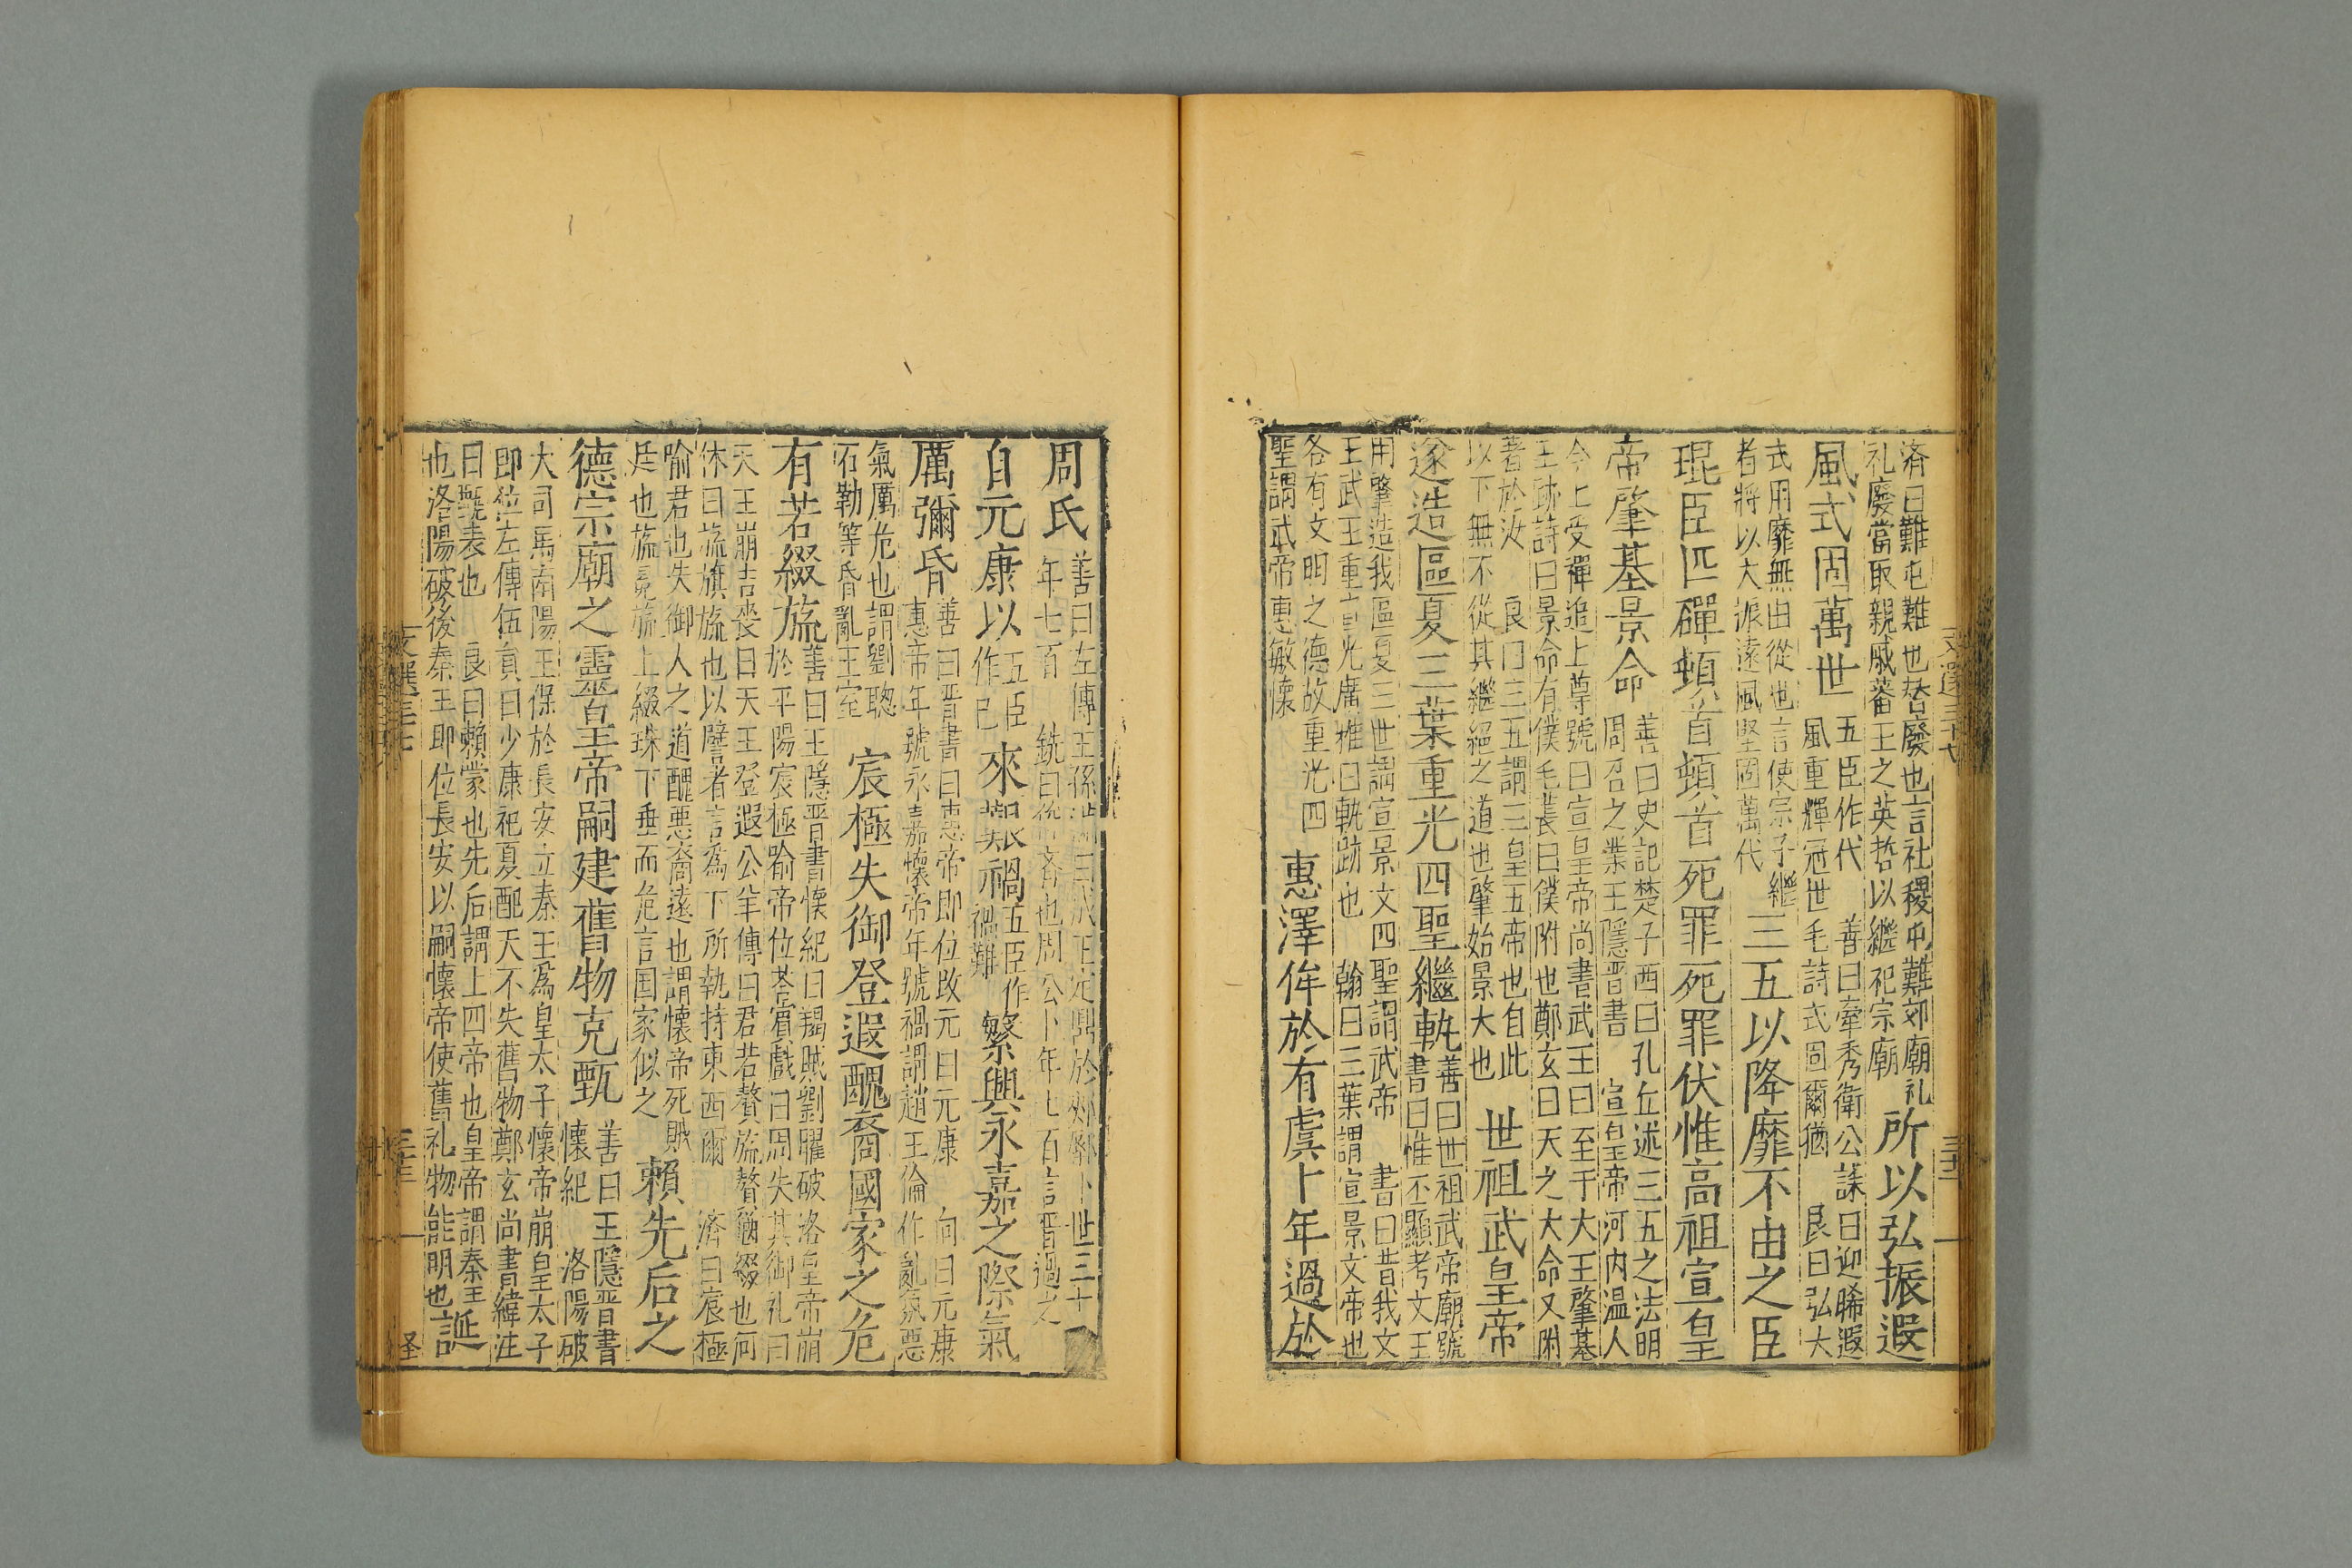 済曰難屯難也替廢也言社稷屯難郊廟礼
礼廢當取親戚蕃王之英哲以繼祀宗廟
所以弘振遐
風式固萬世
五臣作代 善曰牽秀衛公誄曰迎晞遐
風重輝冠世毛詩式固爾猶 良曰弘大
式用靡無由從也言使宗子繼
者將以大振遠風堅固萬代
三五以降靡不由之臣
琨臣匹磾頓首頓首死罪死罪伏惟高祖宣皇
帝肇基景命
善曰史記楚子西曰孔丘述三五之法明
周召之業王隱晋書 宣皇帝河內温人
今上受禪追上尊號曰宣皇帝尚書武王曰至于大王肇基
王跡詩曰景命有僕毛萇曰僕附也鄭玄曰天之大命又附
著於汝 良曰三五謂三皇五帝也自此
以下無不從其繼絕之道也肇始景大也
世祖武皇帝
遂造區夏三葉重光四聖繼軌
善曰世祖武帝廟號
書曰惟丕顯考文王
用肇造我區夏三世謂宣景文四聖謂武帝 書曰昔我文
王武王重宣光廣雅曰軌跡也 翰曰三葉謂宣景文帝也
各有文明之德故重光四
聖謂武帝惠敏懷
惠澤侔於有虞卜年過於
周氏
善曰左傳王孫滿曰成王定鼎於郟鄏卜世三十
年七百 銑曰侔齊也周公卜年七百言晋過之
自元康以
五臣
作已
來艱禍
五臣作
禍難
繁興永嘉之際氣
厲彌昏
善曰晋書曰惠帝即位改元曰元康 向曰元康
惠帝年號永嘉懷帝年號禍謂趙王倫作亂氛惡
氣厲危也謂劉聰
石勒等昏亂王室
宸極失御登遐醜裔國家之危
有若綴旒
善曰王隱晋書懷紀曰羯賊劉曜破洛皇帝崩
於平陽宸極喻帝位荅賓戲曰周失其御礼曰
天王崩告丧曰天王登遐公羊傳曰君若贅旒贅猶綴也何
休曰旒旗旒也以譬者言為下所執持東西爾 濟曰宸極
喻君也失御人之道醜悪裔遠也謂懷帝死賊
廷也旒冕旒上綴珠下垂而危言国家似之
賴先后之
德宗廟之靈皇帝嗣建舊物克甄
善曰王隱晋書
懷紀 洛陽破
大司馬南陽王保於長安立秦王為皇太子懷帝崩皇太子
即位左傳伍員曰少康祀夏配天不失舊物鄭玄尚書緯注
曰甄表也 良曰賴蒙也先后謂上四帝也皇帝謂秦王
也洛陽破後秦王即位長安以嗣懷帝使舊礼物能明也
誕